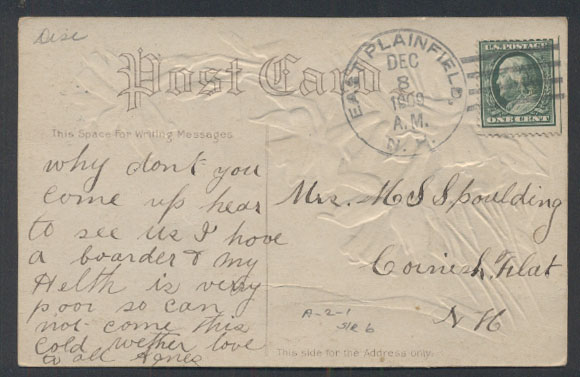 Disc
Post Card
EAST PLAINFIELD,
DEC
8
1909
A.M.
N.H.
U.S. POSTAGE
ONE CENT
This Space for Writing Messages
why dont you
come up hear
to see us I have
a boarder & my
Helth is very
poor so can
not come this
cold wether love
to all Agnes
Mrs. M S Spoulding
Cornish Flat
N H
A-2-1
This side for the Address only.